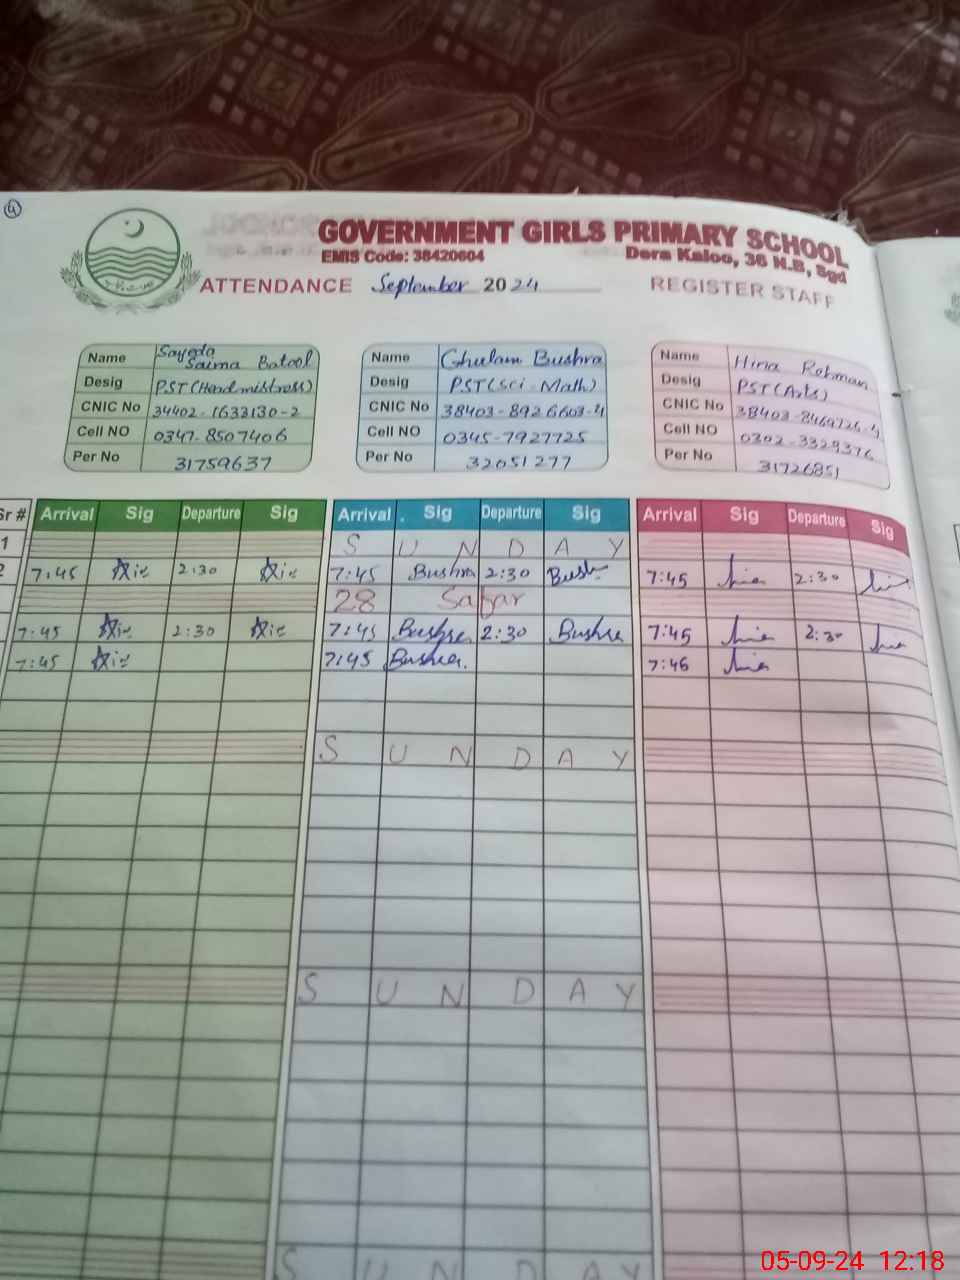 4
GOVERNMENT GIRLS PRIMARY SCHOOL
EMIS Code: 38420604
Dera Kaloo, 36 N.B, Sgd
ATTENDANCE September 2024 REGISTER STAFF
Name Sayeda Saima Batool
Desig PST (Headmistress)
CNIC No 34402-1633130-2
Cell NO 0347-8507406
Per No 31759637
Name Ghulam Bushra
Desig PST (Sci-Math)
CNIC No 38403-8926603-4
Cell NO 0345-7927725
Per No 32051277
Name Hina Rehman
Desig PST (Arts)
CNIC No 38403-8469726-4
Cell NO 0302-3329376
Per No 31726851
Sr # Arrival Sig Departure Sig Arrival Sig Departure Sig Arrival Sig Departure Sig
1 SUNDAY
2 7:45 2:30 7:45 Bushra 2:30 Bush 7:45 2:30
28 Safar
7:45 2:30 7:45 Bushra 2:30 Bushra 7:45 2:30
7:45 7:45 Bushra 7:45
SUNDAY
SUNDAY
SUNDAY
05-09-24 12:18